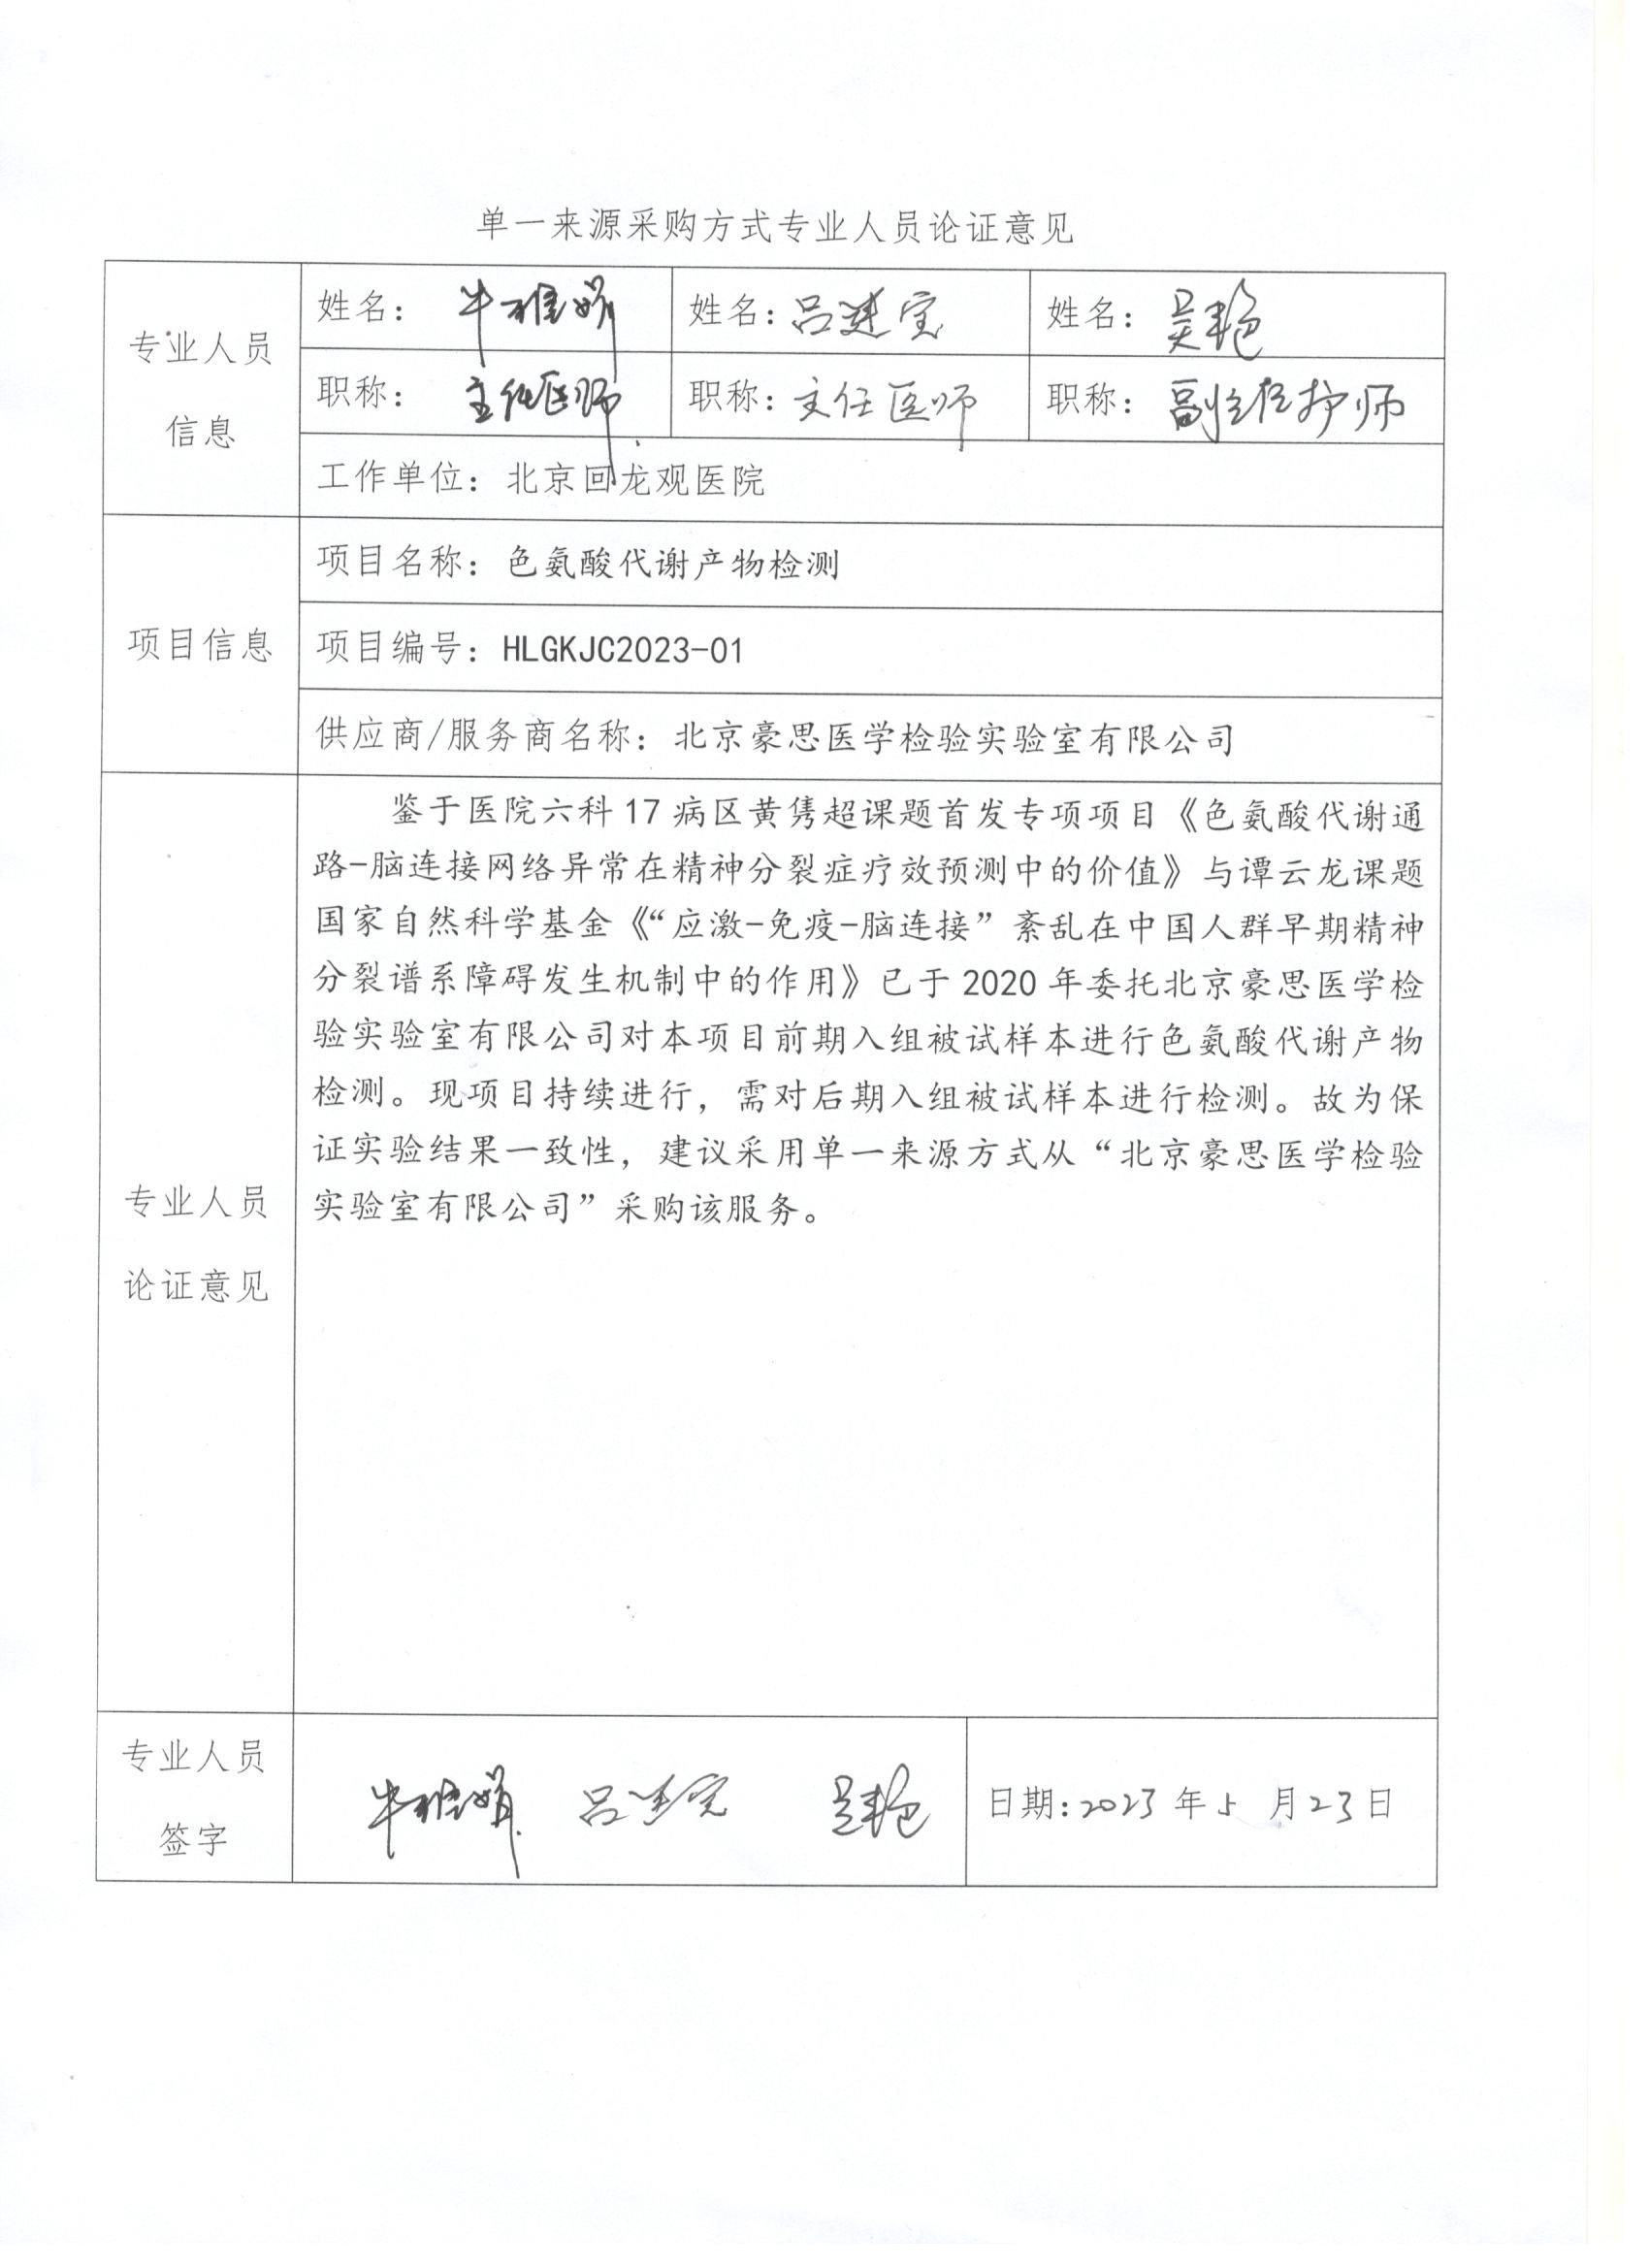 单一来源采购方式专业人员论证意见
专业人员
信息
姓名： 牛雅娟 姓名：吕建宝 姓名：吴艳
职称： 主任医师 职称：主任医师 职称：副主任护师
工作单位：北京回龙观医院
项目信息
项目名称：色氨酸代谢产物检测
项目编号：HLGKJC2023-01
供应商/服务商名称：北京豪思医学检验实验室有限公司
专业人员
论证意见
鉴于医院六科 17 病区黄隽超课题首发专项项目《色氨酸代谢通
路-脑连接网络异常在精神分裂症疗效预测中的价值》与谭云龙课题
国家自然科学基金《“应激-免疫-脑连接”紊乱在中国人群早期精神
分裂谱系障碍发生机制中的作用》已于 2020 年委托北京豪思医学检
验实验室有限公司对本项目前期入组被试样本进行色氨酸代谢产物
检测。现项目持续进行，需对后期入组被试样本进行检测。故为保
证实验结果一致性，建议采用单一来源方式从“北京豪思医学检验
实验室有限公司”采购该服务。
专业人员
签字
牛雅娟 吕建宝 吴艳 日期：2023 年 5 月 23 日